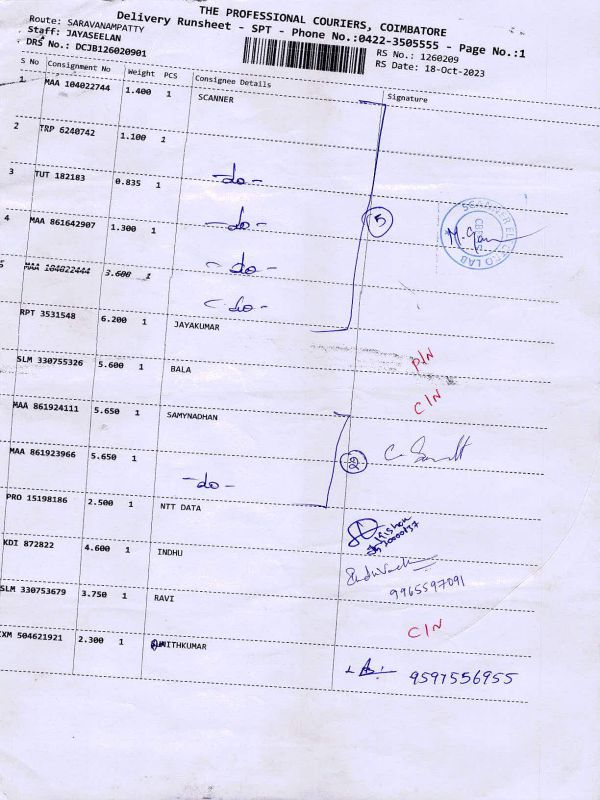 THE PROFESSIONAL COURIERS, COIMBATORE
Delivery Runsheet - SPT - Phone No.:0422-3505555 - Page No.:1
Route: SARAVANAMPATTY
Staff: JAYASEELAN
DRS No.: DCJB126020901
RS No.: 1260209
RS Date: 18-Oct-2023
S No Consignment No Weight PCS Consignee Details Signature
1 MAA 104022744 1.400 1 SCANNER
2 TRP 6240742 1.100 1
-do-
3 TUT 182183 0.835 1
-do-
5
SCANNER ELECTRO LAB
4 MAA 861642907 1.300 1
-do-
MAA 104022444 3.600 1
-do-
RPT 3531548 6.200 1 JAYAKUMAR
P/N
SLM 330755326 5.600 1 BALA
C/N
MAA 861924111 5.650 1 SAMYNADHAN
MAA 861923966 5.650 1
-do-
2
PRO 15198186 2.500 1 NTT DATA
KDI 872822 4.600 1 INDHU
9965597091
SLM 330753679 3.750 1 RAVI
C/N
CXM 504621921 2.300 1 NITHKUMAR
9597556955